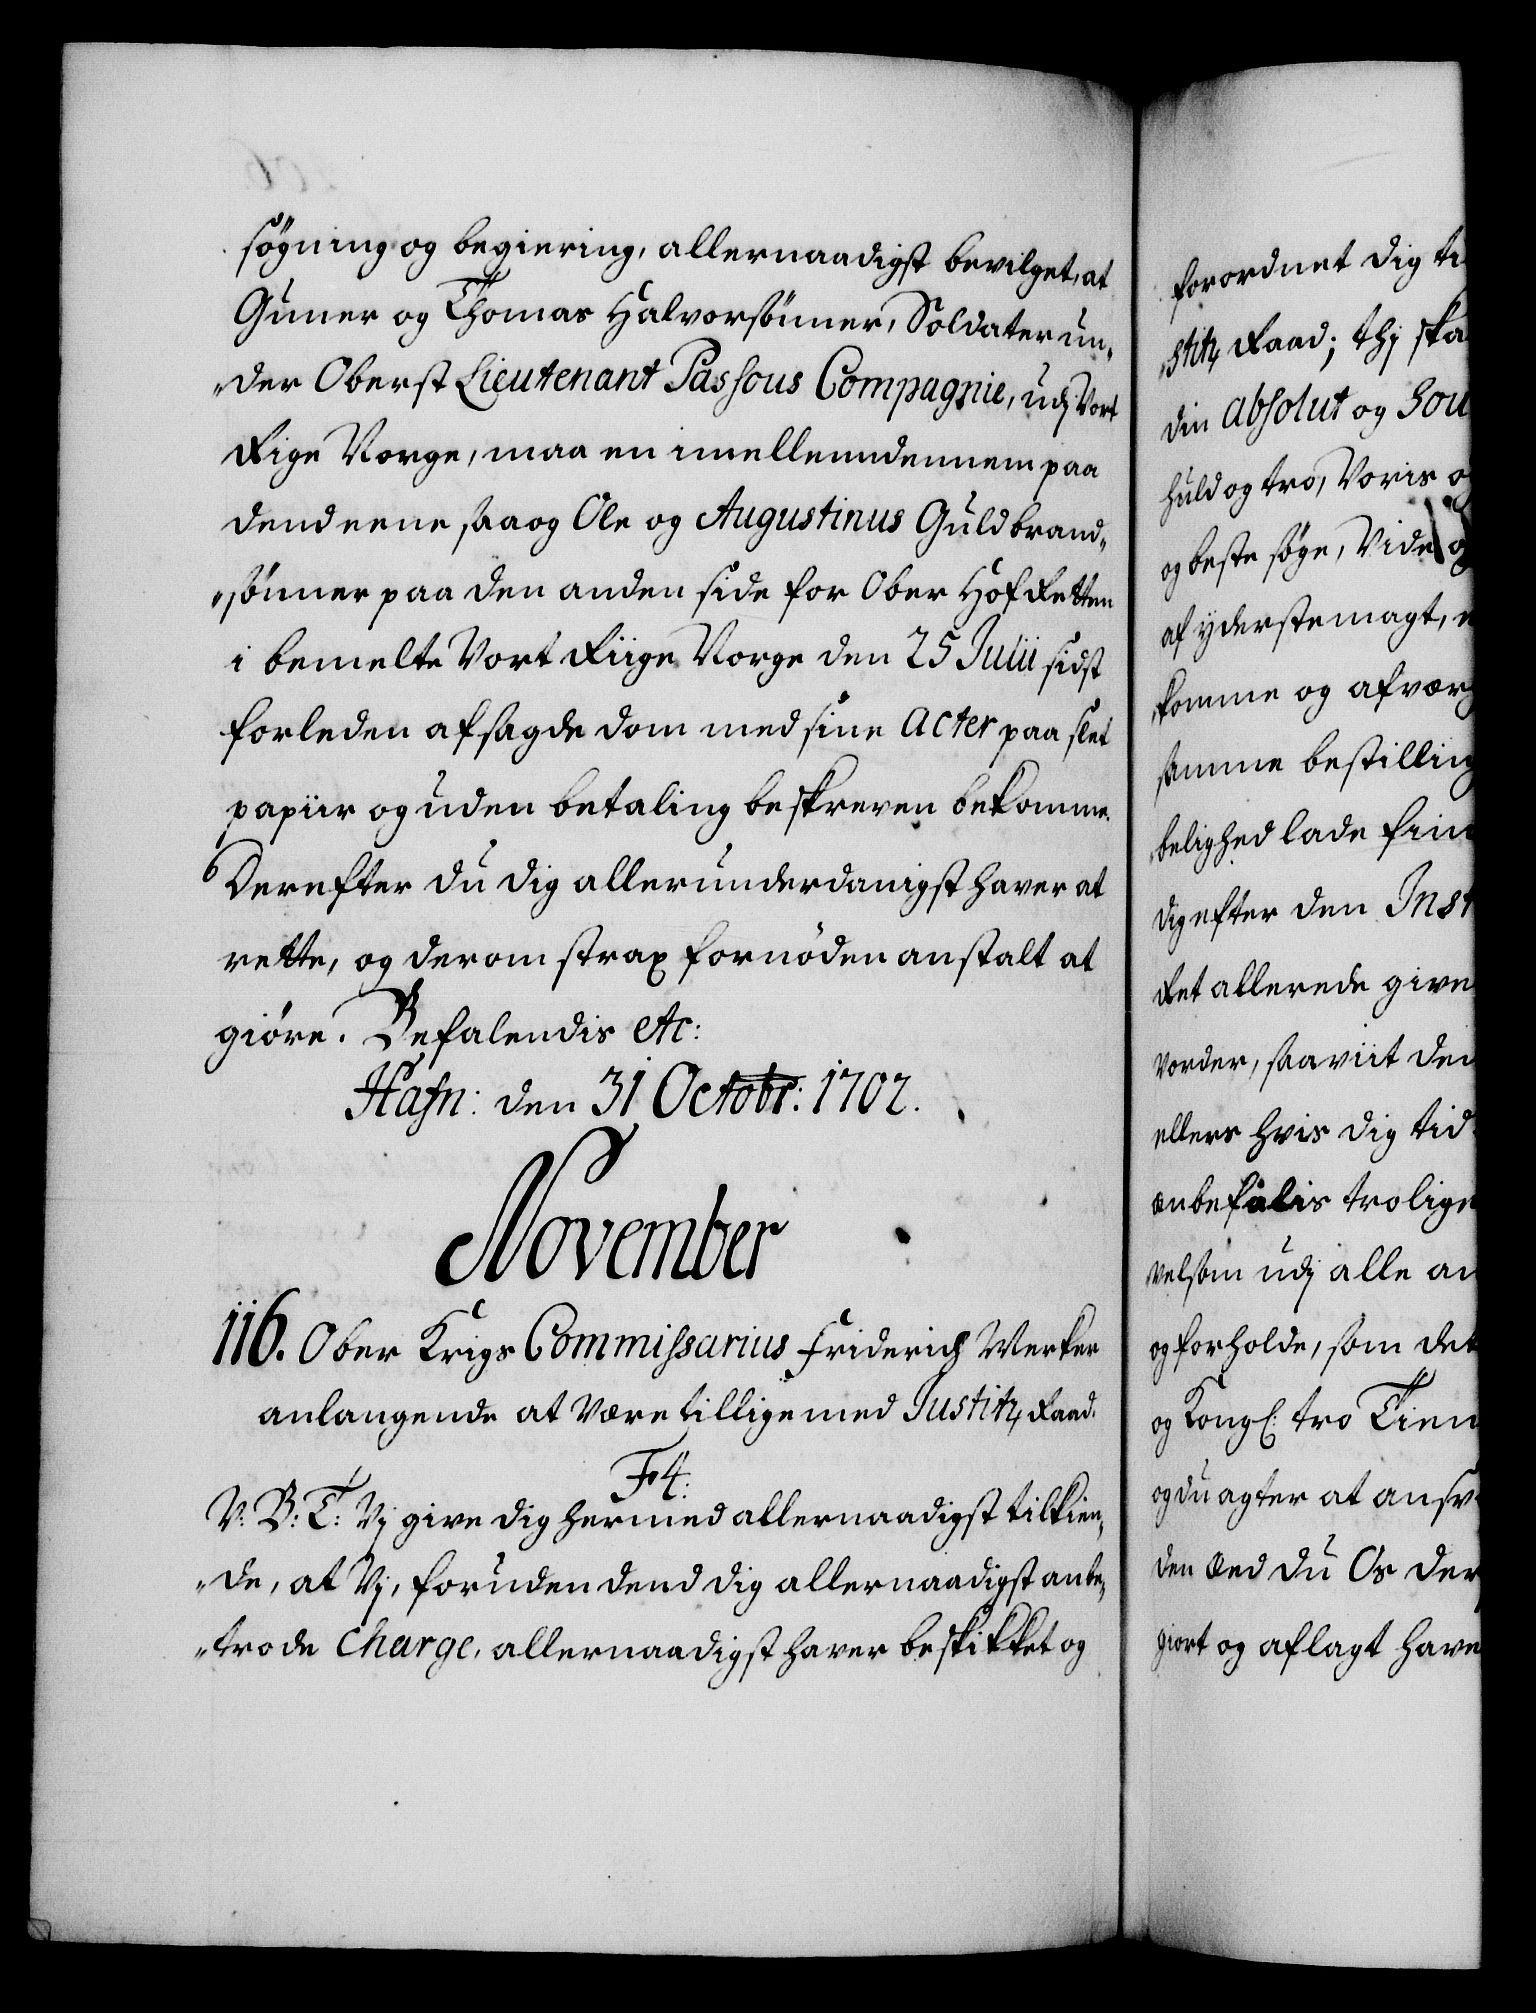 søgning og begiering, allernaadigst bevilget, at
Guner og Thomas Halvorsönner, Soldater un„
„der Oberst Lieutenant Passous Compagnie, udj Vort
Rige Norge, maa en imellem dennem paa
dend eene saa og Ole og Augustinus Guldbrand„
„sönner paa den anden side for Ober Hof Retten
i bemelte Vort Riige Norge den 25 Julii sidst
forleden afsagde dom med sine Acter paa slet
papiir og uden betaling beskreven bekomme.
Derefter du dig allerunderdanigst haver at
rette, og derom strax fornöden anstalt at
giöre. Befalendis etc:
Hafn: den 31 Octobr: 1702.
November
116. Ober Krigs Commissarius Friderich Werker
anlangende at være tillige med Justitz Raad.
F4:
V: B: T: Vj give dig hermed allernaadigst tilkien„
„de, at Vj, foruden dend dig allernaadigst anbe„
„trode Charge, allernaadigst haver beskikket og
forordnet dig
„stitz Raad; thj
din absolut og
huld og tro, Voris
og beste søge, Vide
af yderste magt,
komme og
samme
„belighed lade
dig efter den
Ret allerede
vorder, saa viit
ellers hvis dig
anbefalis
velsom udj alle
og forholde, som det
og Kongl: tro
og du agter at
den Eed du Os
giort og aflagt